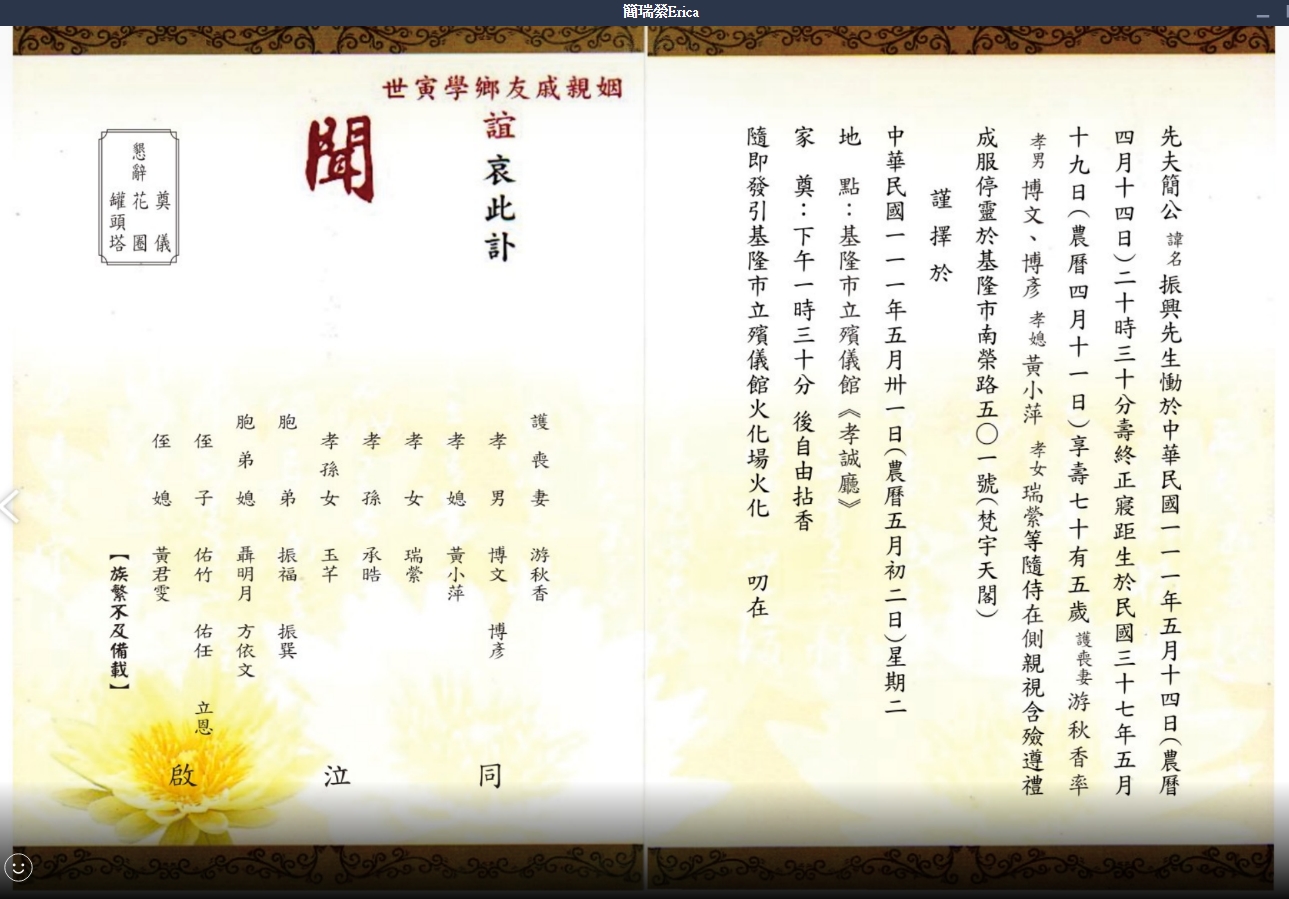 簡瑞縈Erica
先夫簡公 諱名 振興先生慟於中華民國一一一年五月十四日(農曆
四月十四日)二十時三十分壽終正寢距生於民國三十七年五月
十九日(農曆四月十一日)享壽七十有五歲 護喪妻 游秋香率
孝男 博文、博彥 孝媳 黃小萍 孝女 瑞縈等隨侍在側親視含殮遵禮
成服停靈於基隆市南榮路五〇一號(梵宇天閣)
謹擇於
中華民國一一一年五月卅一日(農曆五月初二日)星期二
地 點:基隆市立殯儀館《孝誠廳》
家 奠:下午一時三十分 後自由拈香
隨即發引基隆市立殯儀館火化場火化 叨在
姻親戚友鄉學寅世
誼哀此訃
聞
護喪妻 游秋香
孝男 博文 博彥
孝媳 黃小萍
孝女 瑞縈
孝孫 承晧
孝孫女 玉芊
胞弟 振福 振巽
胞弟媳 聶明月 方依文
侄子 佑竹 佑任 立恩
侄媳 黃君雯
【族繁不及備載】
同 泣 啟
奠儀
懇辭 花圈
罐頭塔